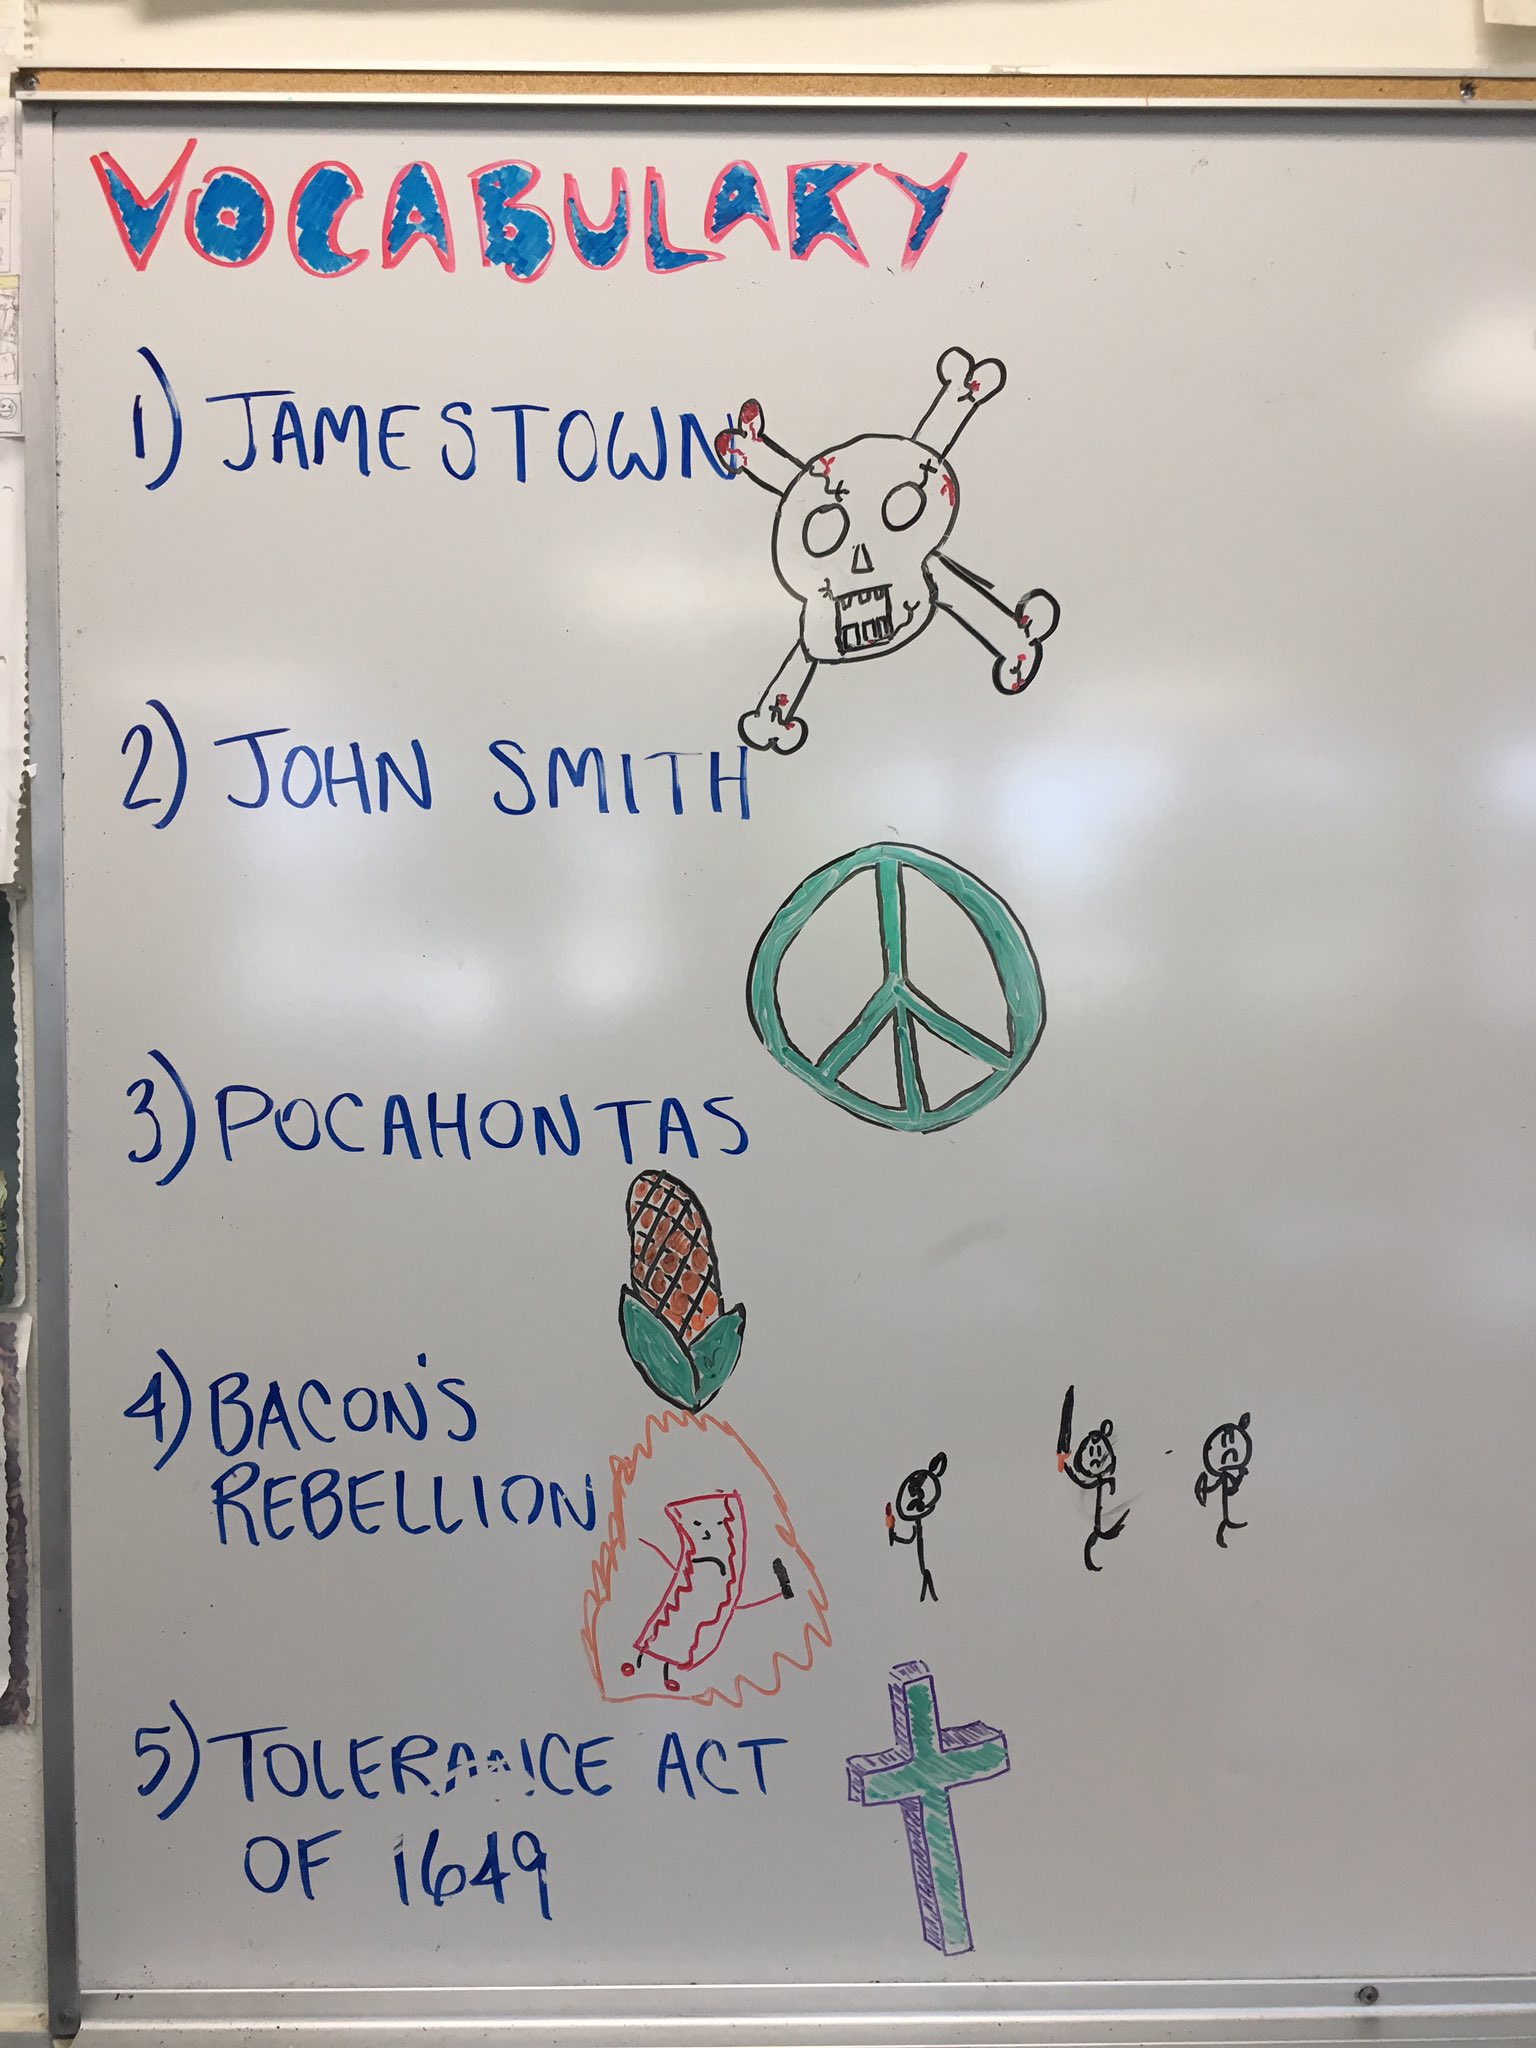 VOCABULARY
1) JAMESTOWN
2) JOHN SMITH
3) POCAHONTAS
4) BACON'S
REBELLION
5) TOLERANCE ACT
OF 1649